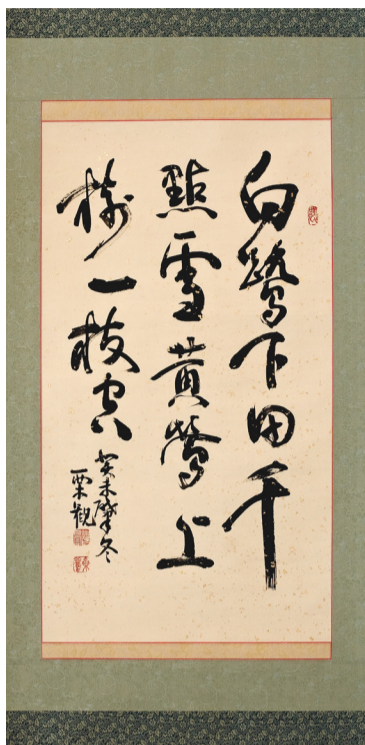 白鷺下田千
點雪黄鶯上
樹一枝花
癸未肇冬
栗観